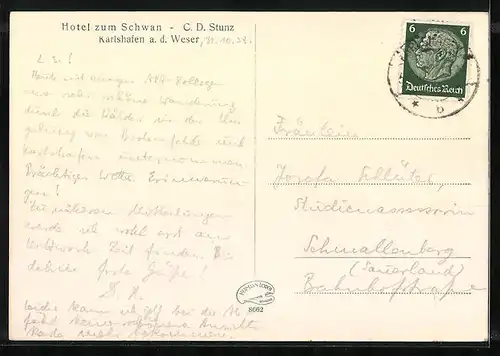 Hotel zum Schwan - C. D. Stunz
Karlshafen a. d. Weser, 31.10.39.
L. S.!
Heute mit einigen Kolleg
eine sehr schöne Wanderung
durch die Wälder in der Um
gebung von Bodenfelde und
Karlshafen unternommen.
Prächtiges Wetter. Erinnerun
gen!
Zu näheren Mitteilungen
werde ich wohl erst am
Zeit finden. Bis
dahin frohe Grüße!
D. H.
Leider kann ich
mehr bekommen.
6 6
Deutsches Reich
b
Fräulein
Josefa Schlüter,
Studienassessorin
Schmallenberg
(Sauerland)
Bahnhofstrasse
8662